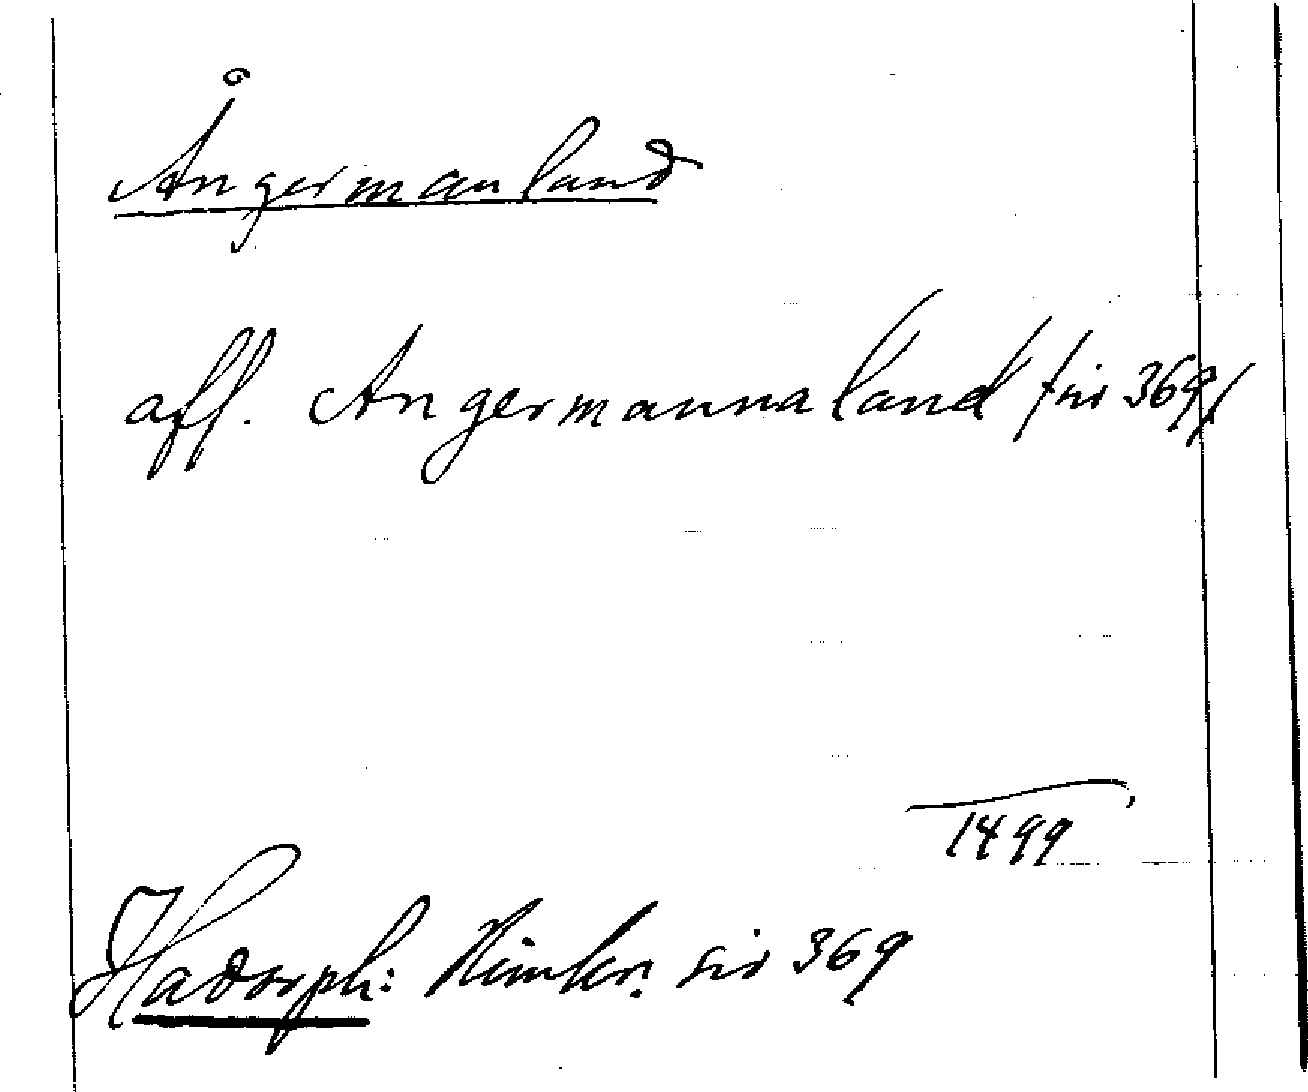 Ångermanland
aff. Angermannaland /sid 369/
1499
Hadorph: Rimkr. sid 369